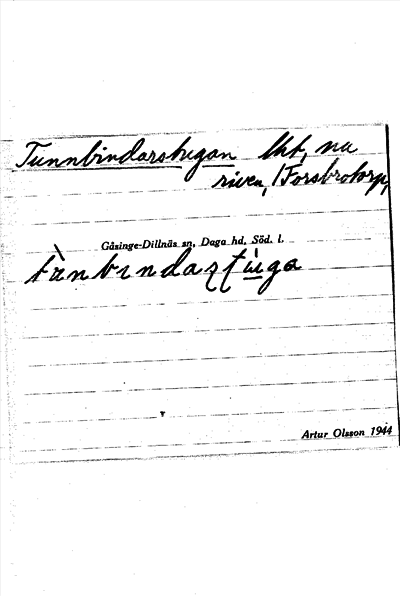 Tunnbindarstugan lht, nu
riven, /Forsbrotorp,
Gåsinge-Dillnäs sn, Daga hd, Söd. l.
tànbindaʂt̀uga
Artur Olsson 1944